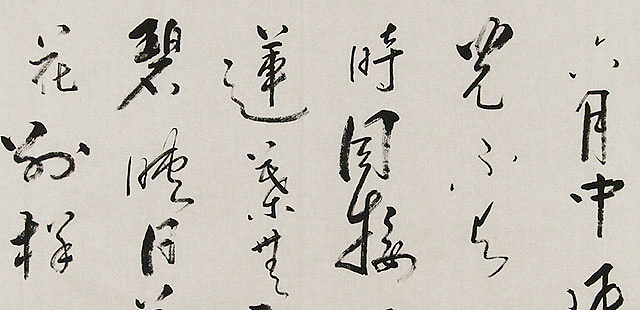 六月中
光不与
時同接
蓮葉無
碧映日
花別样